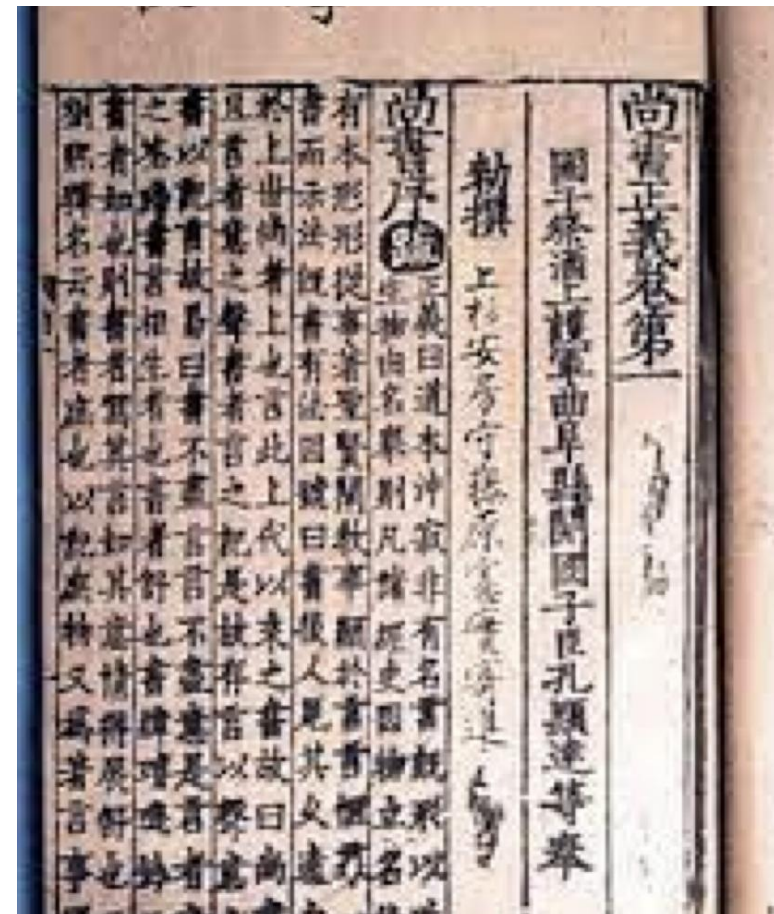 尚書正義卷第一
國子祭酒上護軍曲阜縣開國子臣孔穎達等奉
勅撰 上杉安房守藤原憲實寄進
尚書序 疏 正義曰道本沖寂非有名言既形以
生物由名舉則凡諸經史因物立名
有本形形從事著聖賢闡教事顯於言言愜羣
書而示法既書有法因號曰書後人見其久遠
於上世尚者上也言此上代以來之書故曰尚
且言者意之聲書者言之記是故存言以聲意
書以記言故易曰書不盡言言不盡意是言者
之筌蹄書言相生者也書者舒也書緯璿璣鈐
書者如也則書者寫其言如其意情得展舒也
劉熙釋名云書者庶也以記庶物又爲著言事